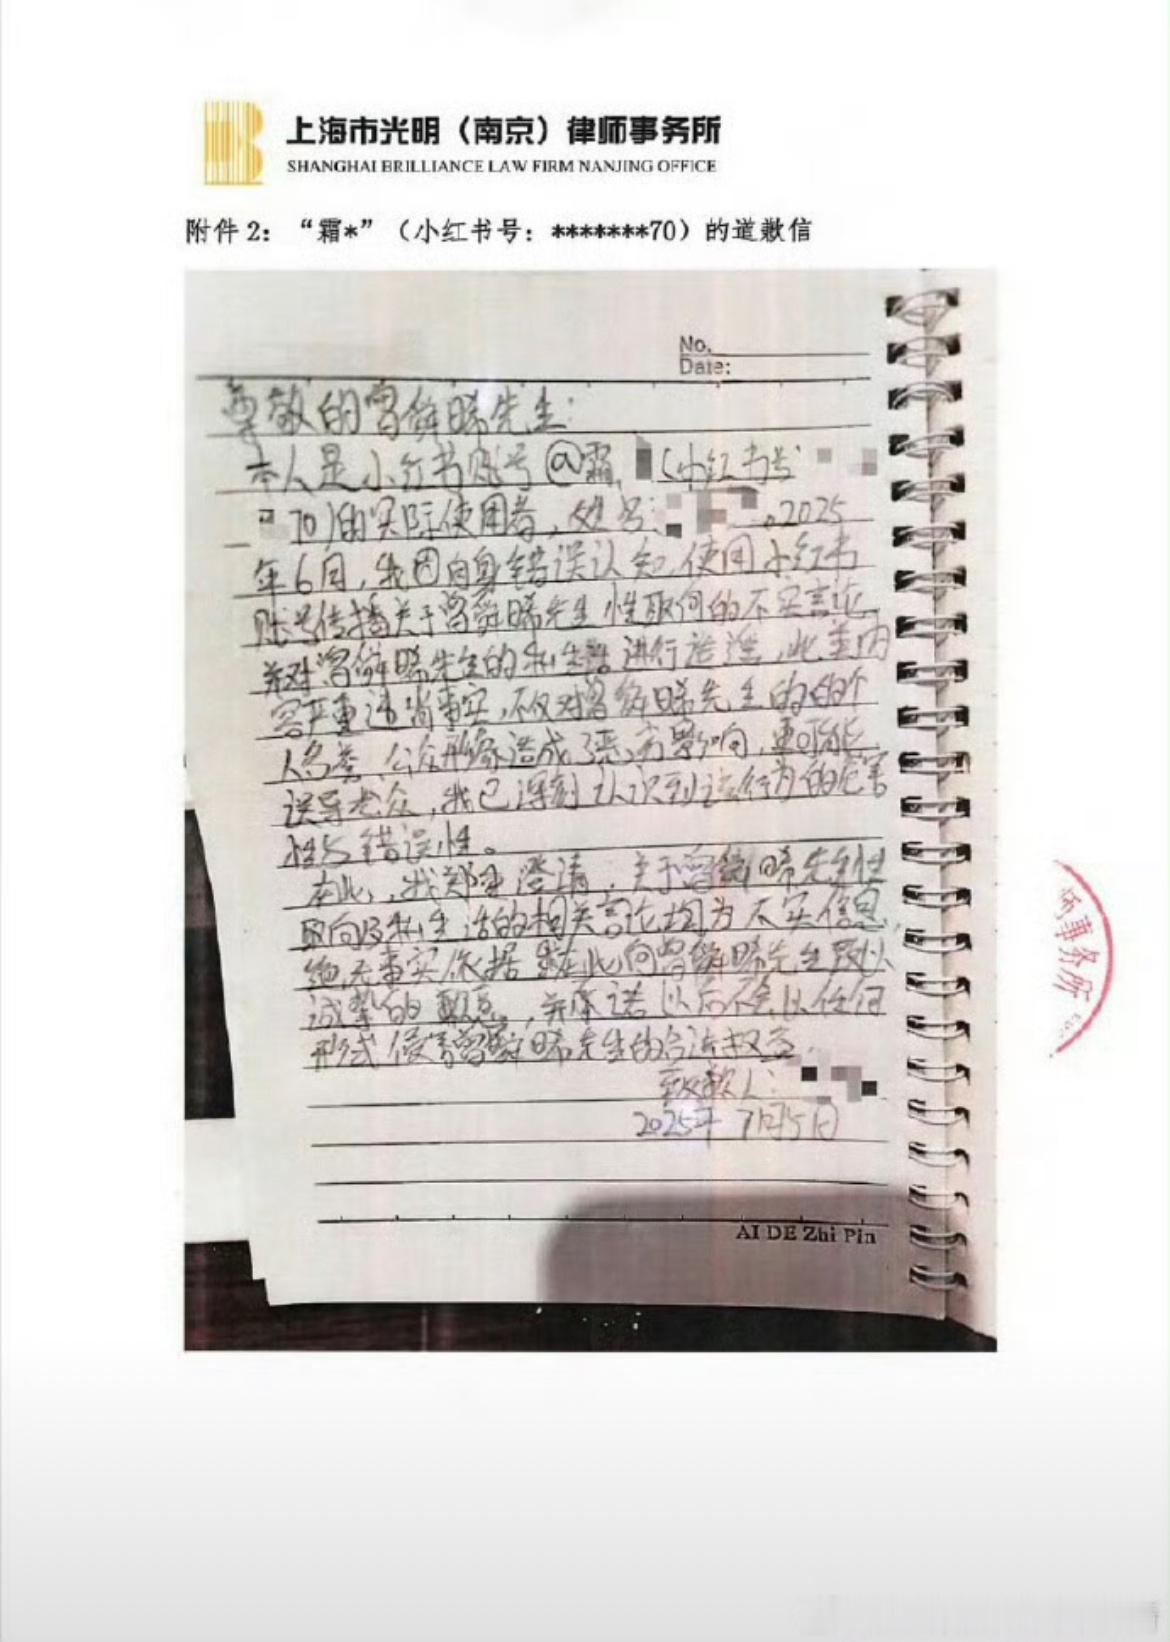 上海市光明（南京）律师事务所
SHANGHAI BRILLIANCE LAW FIRM NANJING OFFICE
附件2：“霜*”（小红书号：*******70）的道歉信
No.
Date:
尊敬的曾舜晞先生：
本人是小红书账号@霜（小红书号
70)的实际使用者，姓名:。2025
年6月，我因自身错误认知，使用小红书
账号传播关于曾舜晞先生性取向的不实言论，
并对曾舜晞先生的私生活进行造谣，此类内
容严重违背事实，不仅对曾舜晞先生的的个
人名誉、公众形象造成了恶劣影响，更可能
误导公众，我已深刻认识到该行为的危害
性与错误性。
在此，我郑重澄清，关于曾舜晞先生性
取向及私生活的相关言论均为不实信息，
绝无事实依据在此向曾舜晞先生致以
诚挚的歉意，并承诺以后不会以任何
形式侵害曾舜晞先生的合法权益。
致歉人：
2025年7月5日
AI DE Zhi Pin
师事务所